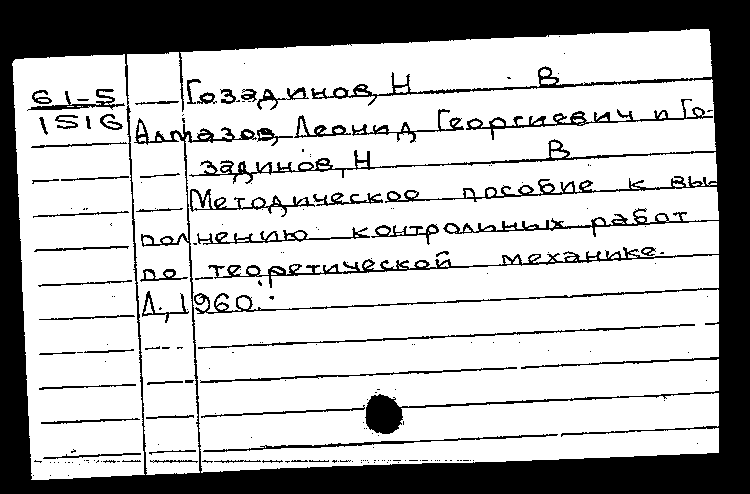 61-5 Гозадинов, Н В
1516 Алмазов, Леонид Георгиевич и Го-
задинов, Н В
Методическое пособие к вы
полнению контрольных работ
по теоретической механике.
Л., 1960.